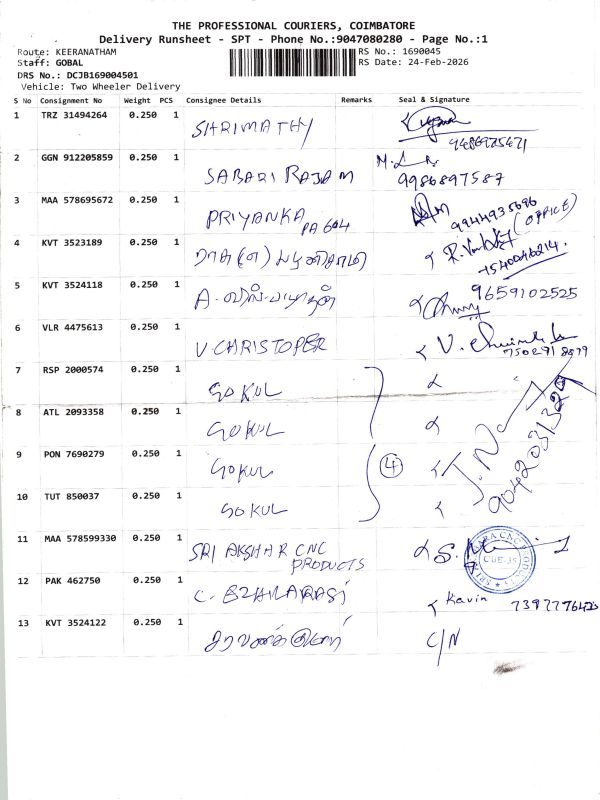 THE PROFESSIONAL COURIERS, COIMBATORE
Delivery Runsheet - SPT - Phone No.:9047080280 - Page No.:1
Route: KEERANATHAM RS No.: 1690045
Staff: GOBAL RS Date: 24-Feb-2026
DRS No.: DCJB169004501
Vehicle: Two Wheeler Delivery
S No Consignment No Weight PCS Consignee Details Remarks Seal & Signature
1 TRZ 31494264 0.250 1 SHRIMATHY
2 GGN 912205859 0.250 1 SABARI RAJAM 9986897587
3 MAA 578695672 0.250 1 PRIYANKA PA 604 9944935696 (OFFICE)
4 KVT 3523189 0.250 1
5 KVT 3524118 0.250 1 9659102525
6 VLR 4475613 0.250 1 V. CHRISTOPER
7 RSP 2000574 0.250 1 GOKUL
8 ATL 2093358 0.250 1 GOKUL
9 PON 7690279 0.250 1 GOKUL 4
10 TUT 850037 0.250 1 GOKUL
11 MAA 578599330 0.250 1 SRI AKSHAR CNC PRODUCTS
12 PAK 462750 0.250 1 C. EZHILARASI Kavin
13 KVT 3524122 0.250 1 C/N